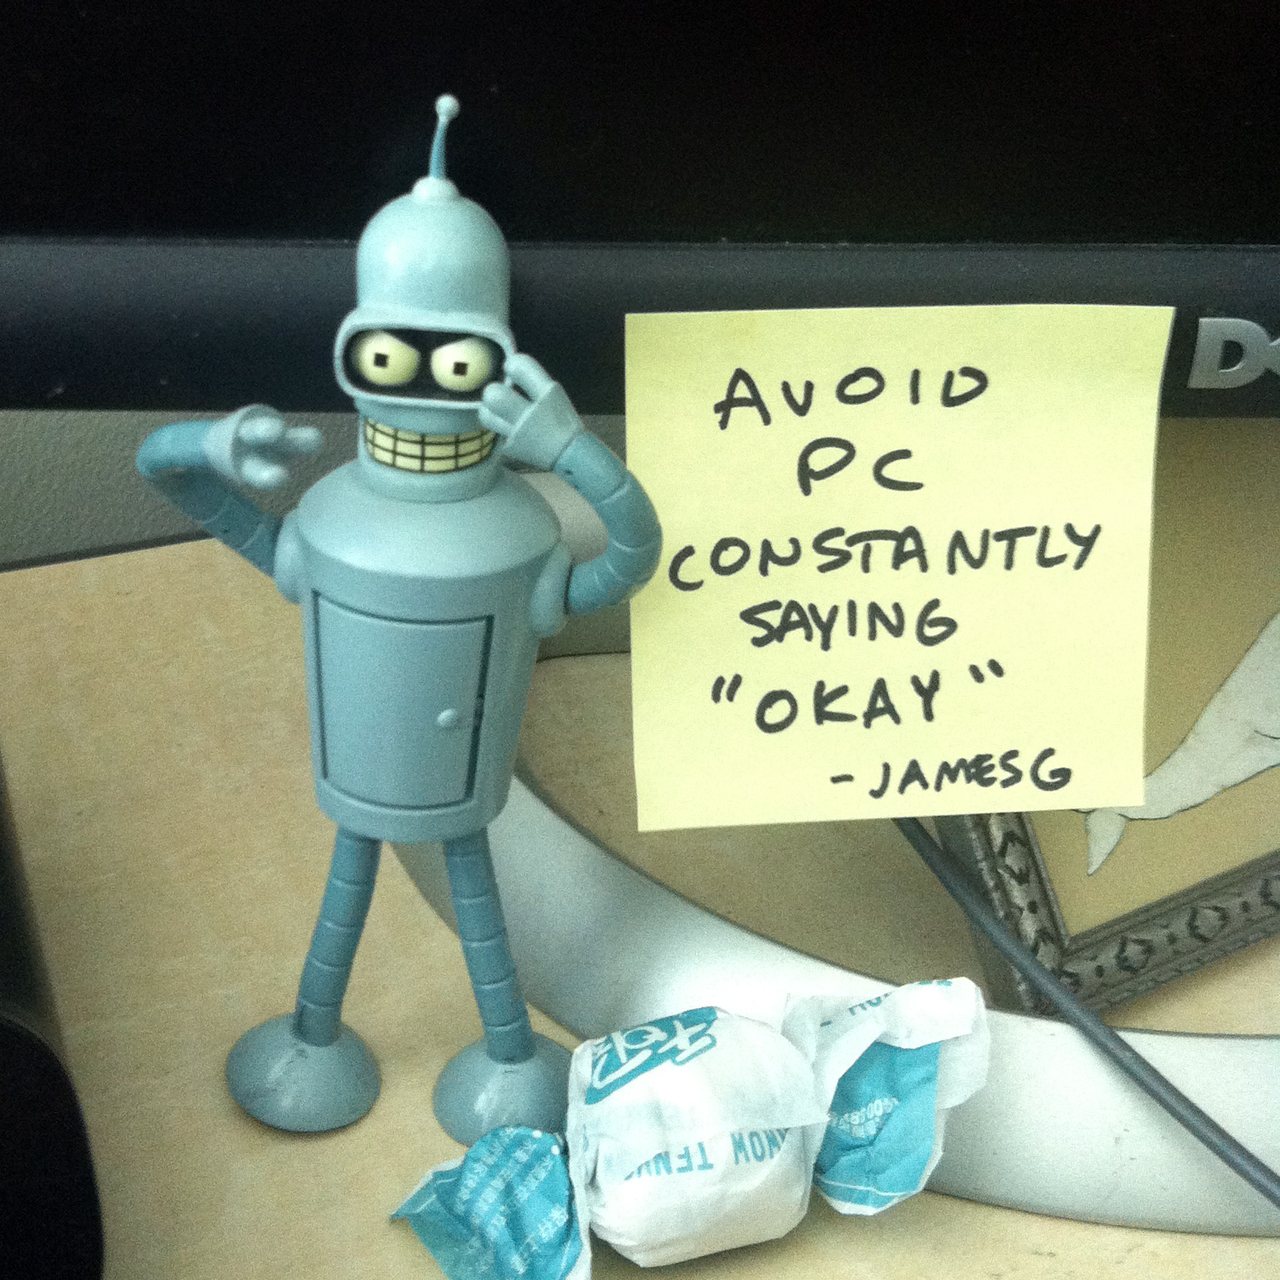 AVOID
PC
CONSTANTLY
SAYING
"OKAY"
-JAMESG